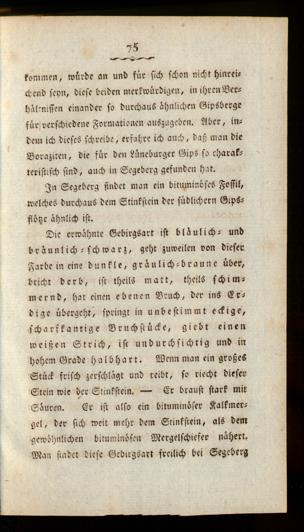 75
kommen, würde an und für sich schon nicht hinrei-
chend seyn, diese beiden merkwürdigen, in ihren Ver-
hältnissen einander so durchaus ähnlichen Gipsberge
für verschiedene Formationen auszugeben. Aber, in-
dem ich dieses schreibe, erfahre ich auch, daß man die
Boraziten, die für den Lüneburger Gips so charak-
teristisch sind, auch in Segeberg gefunden hat.
In Segeberg findet man ein bituminöses Fossil,
welches durchaus dem Stinkstein der südlichern Gips-
flötze ähnlich ist.
Die erwähnte Gebirgsart ist bläulich- und
bräunlich-schwarz, geht zuweilen von dieser
Farbe in eine dunkle, gräulich-braune über,
bricht derb, ist theils matt, theils schim-
mernd, hat einen ebenen Bruch, der ins Er-
dige übergeht, springt in unbestimmt eckige,
scharfkantige Bruchstücke, giebt einen
weißen Strich, ist undurchsichtig und in
hohem Grade halbhart. Wenn man ein großes
Stück frisch zerschlägt und reibt, so riecht dieser
Stein wie der Stinkstein. — Er braust stark mit
Säuren. Er ist also ein bituminöser Kalkmer-
gel, der sich weit mehr dem Stinkstein, als dem
gewöhnlichen bituminösen Mergelschiefer nähert.
Man findet diese Gebirgsart freilich bei Segeberg